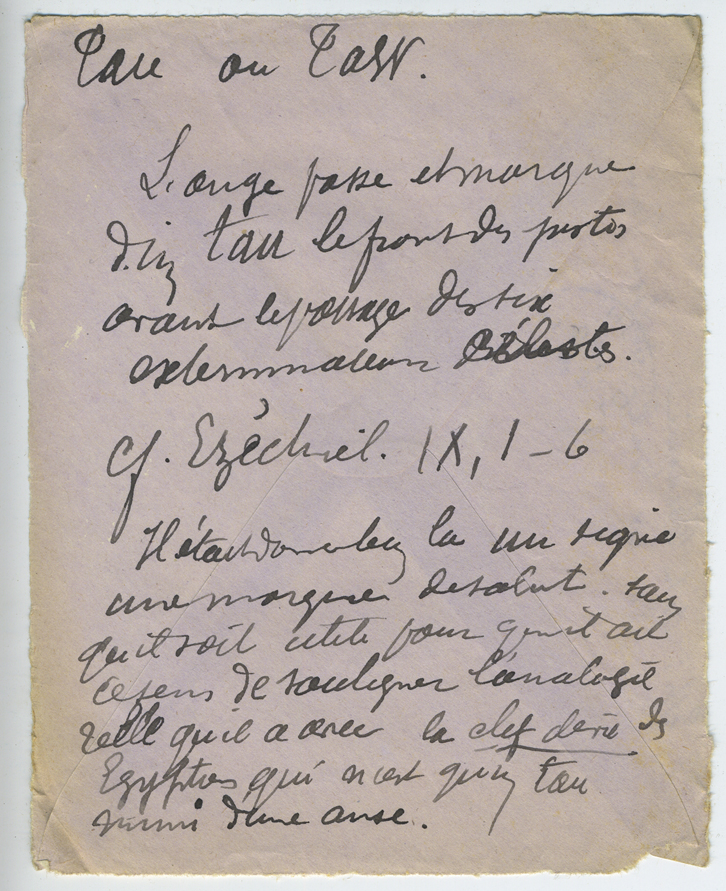 Tau ou Taw.
L'ange passe et marque
d'un tau le front des justes
avant le passage des six
exterminateurs célestes.
cf. Ezéchiel. IX, 1-6
Il était donc bien là un signe
une marque de salut. sans
qu'il soit utile pour qu'il ait
ce sens de souligner l'analogie
réelle qu'il a avec la clef de vie des
Egyptiens qui n'est qu'un tau
muni d'une anse.